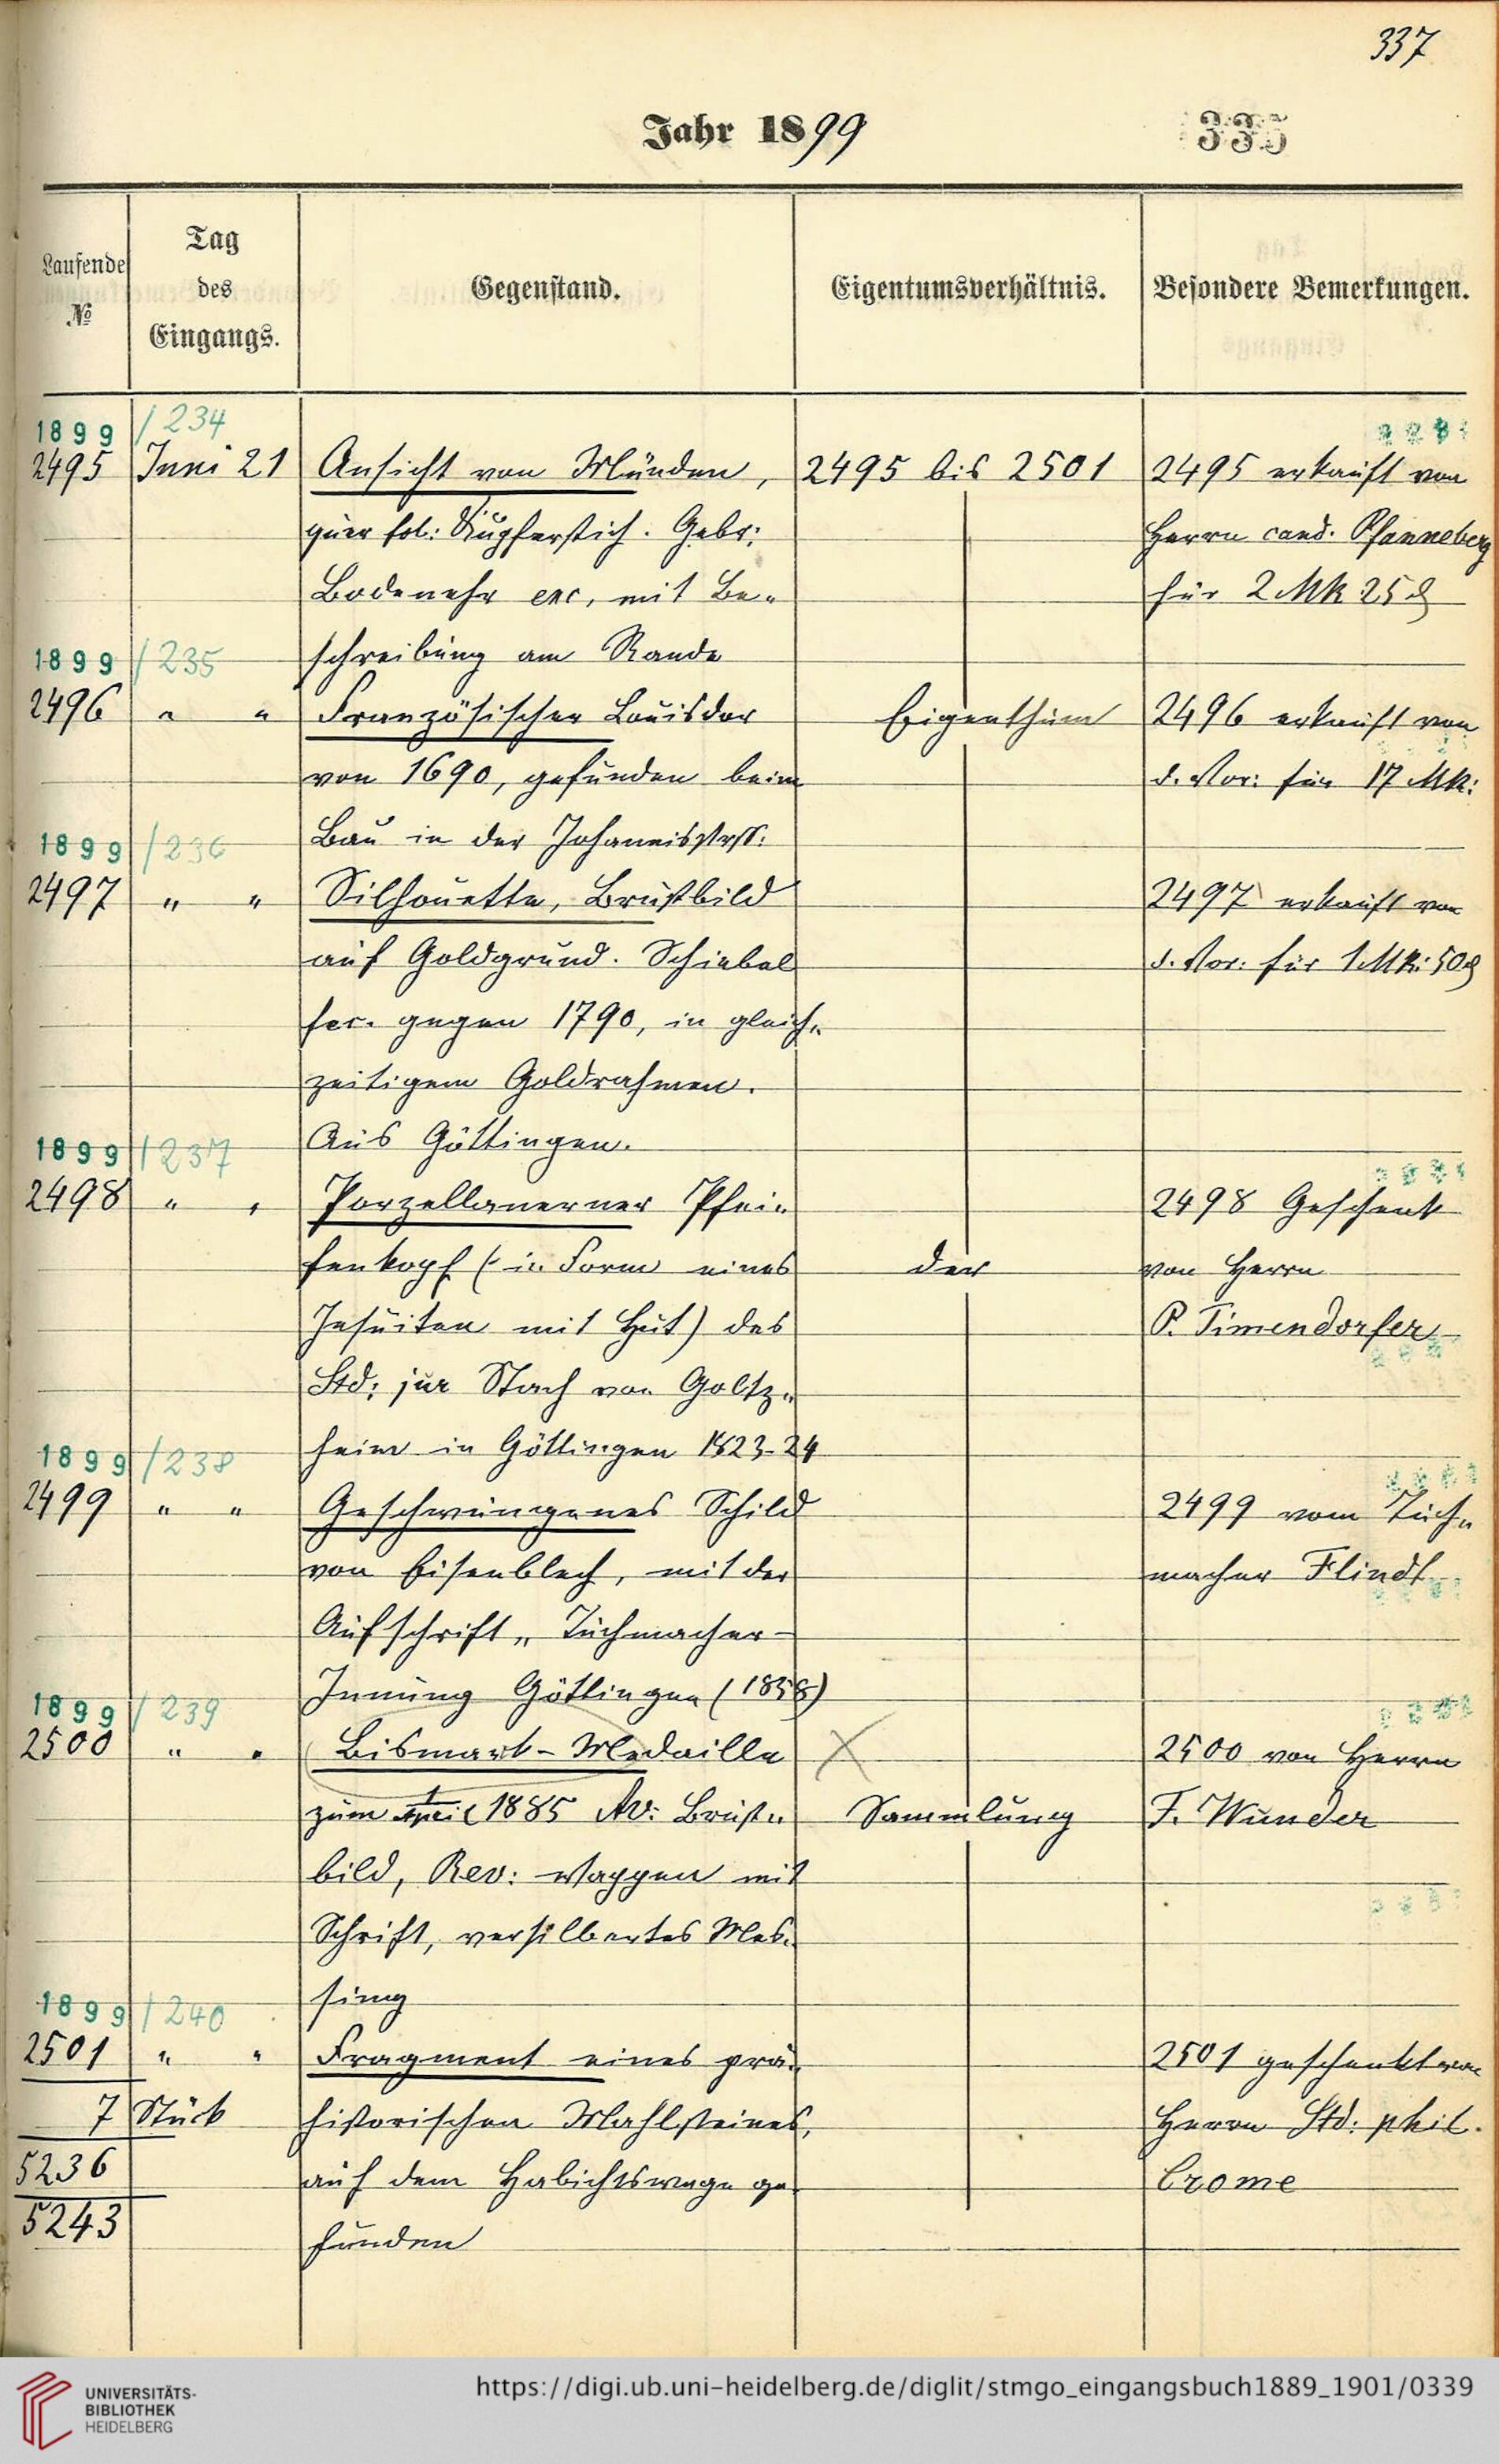 337
Jahr 1899
335
Laufende
№
Tag
des
Eingangs.
Gegenstand.
Eigentumsverhältnis.
Besondere Bemerkungen.
1899/234
2495 Juni 21 Ansicht von Münden, 2495 bis 2501 2495 erkauft von
quer fol: Kupferstich. Gebr: Herrn cand. Pfanneberg
Bodenehr exc, mit Be- für 2 Mk 25 ₰
1899/235 schreibung am Rande
2496 " " Französischer Louisdor Eigenthum 2496 erkauft von
von 1690, gefunden beim d. Vor: für 17 Mk:
1899/236 Bau in der Johannisstrß:
2497 " " Silhouette, Brustbild 2497 erkauft von
auf Goldgrund. Schiebel d. Vor: für 1 Mk: 50 ₰
fec. gegen 1790, in gleich-
zeitigem Goldrahmen.
1899/237 Aus Göttingen.
2498 " " Porzellanerner Pfei- 2498 Geschenk
fenkopf (in Form eines der von Herrn
Jesuiten mit Hut) des P. Timendorfer
Std: jur Stach von Goltz-
1899/238 heim in Göttingen 1823-24
2499 " " Geschwungenes Schild 2499 vom Tuch-
von Eisenblech, mit der macher Flindt
Aufschrift „Tuchmacher-
1899/239 Innung Göttingen (1858)
2500 " " Bismark-Medaille X 2500 von Herrn
zum 1 April 1885 Av: Brust- Sammlung F. Wunder
bild, Rev: Wappen mit
Schrift, versilbertes Mes-
1899/240 sing
2501 " " Fragment eines prä- 2501 geschenkt von
7 Stück historischen Mahlsteines, Herrn Std: phil.
5236 auf dem Habichtswege ge- Crome
5243 funden
UNIVERSITÄTS-
BIBLIOTHEK
HEIDELBERG
https://digi.ub.uni-heidelberg.de/diglit/stmgo_eingangsbuch1889_1901/0339